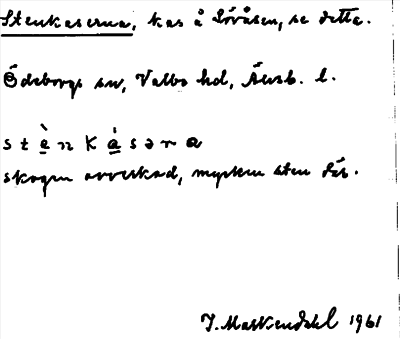 Stenkaserna, kas å Lövåsen, se detta.
Ödeborgs sn, Valbo hd, Älvsb. l.
s t è n k á s ə r n a
skogen avverkad, mycken sten där.
J. Markendahl 1961